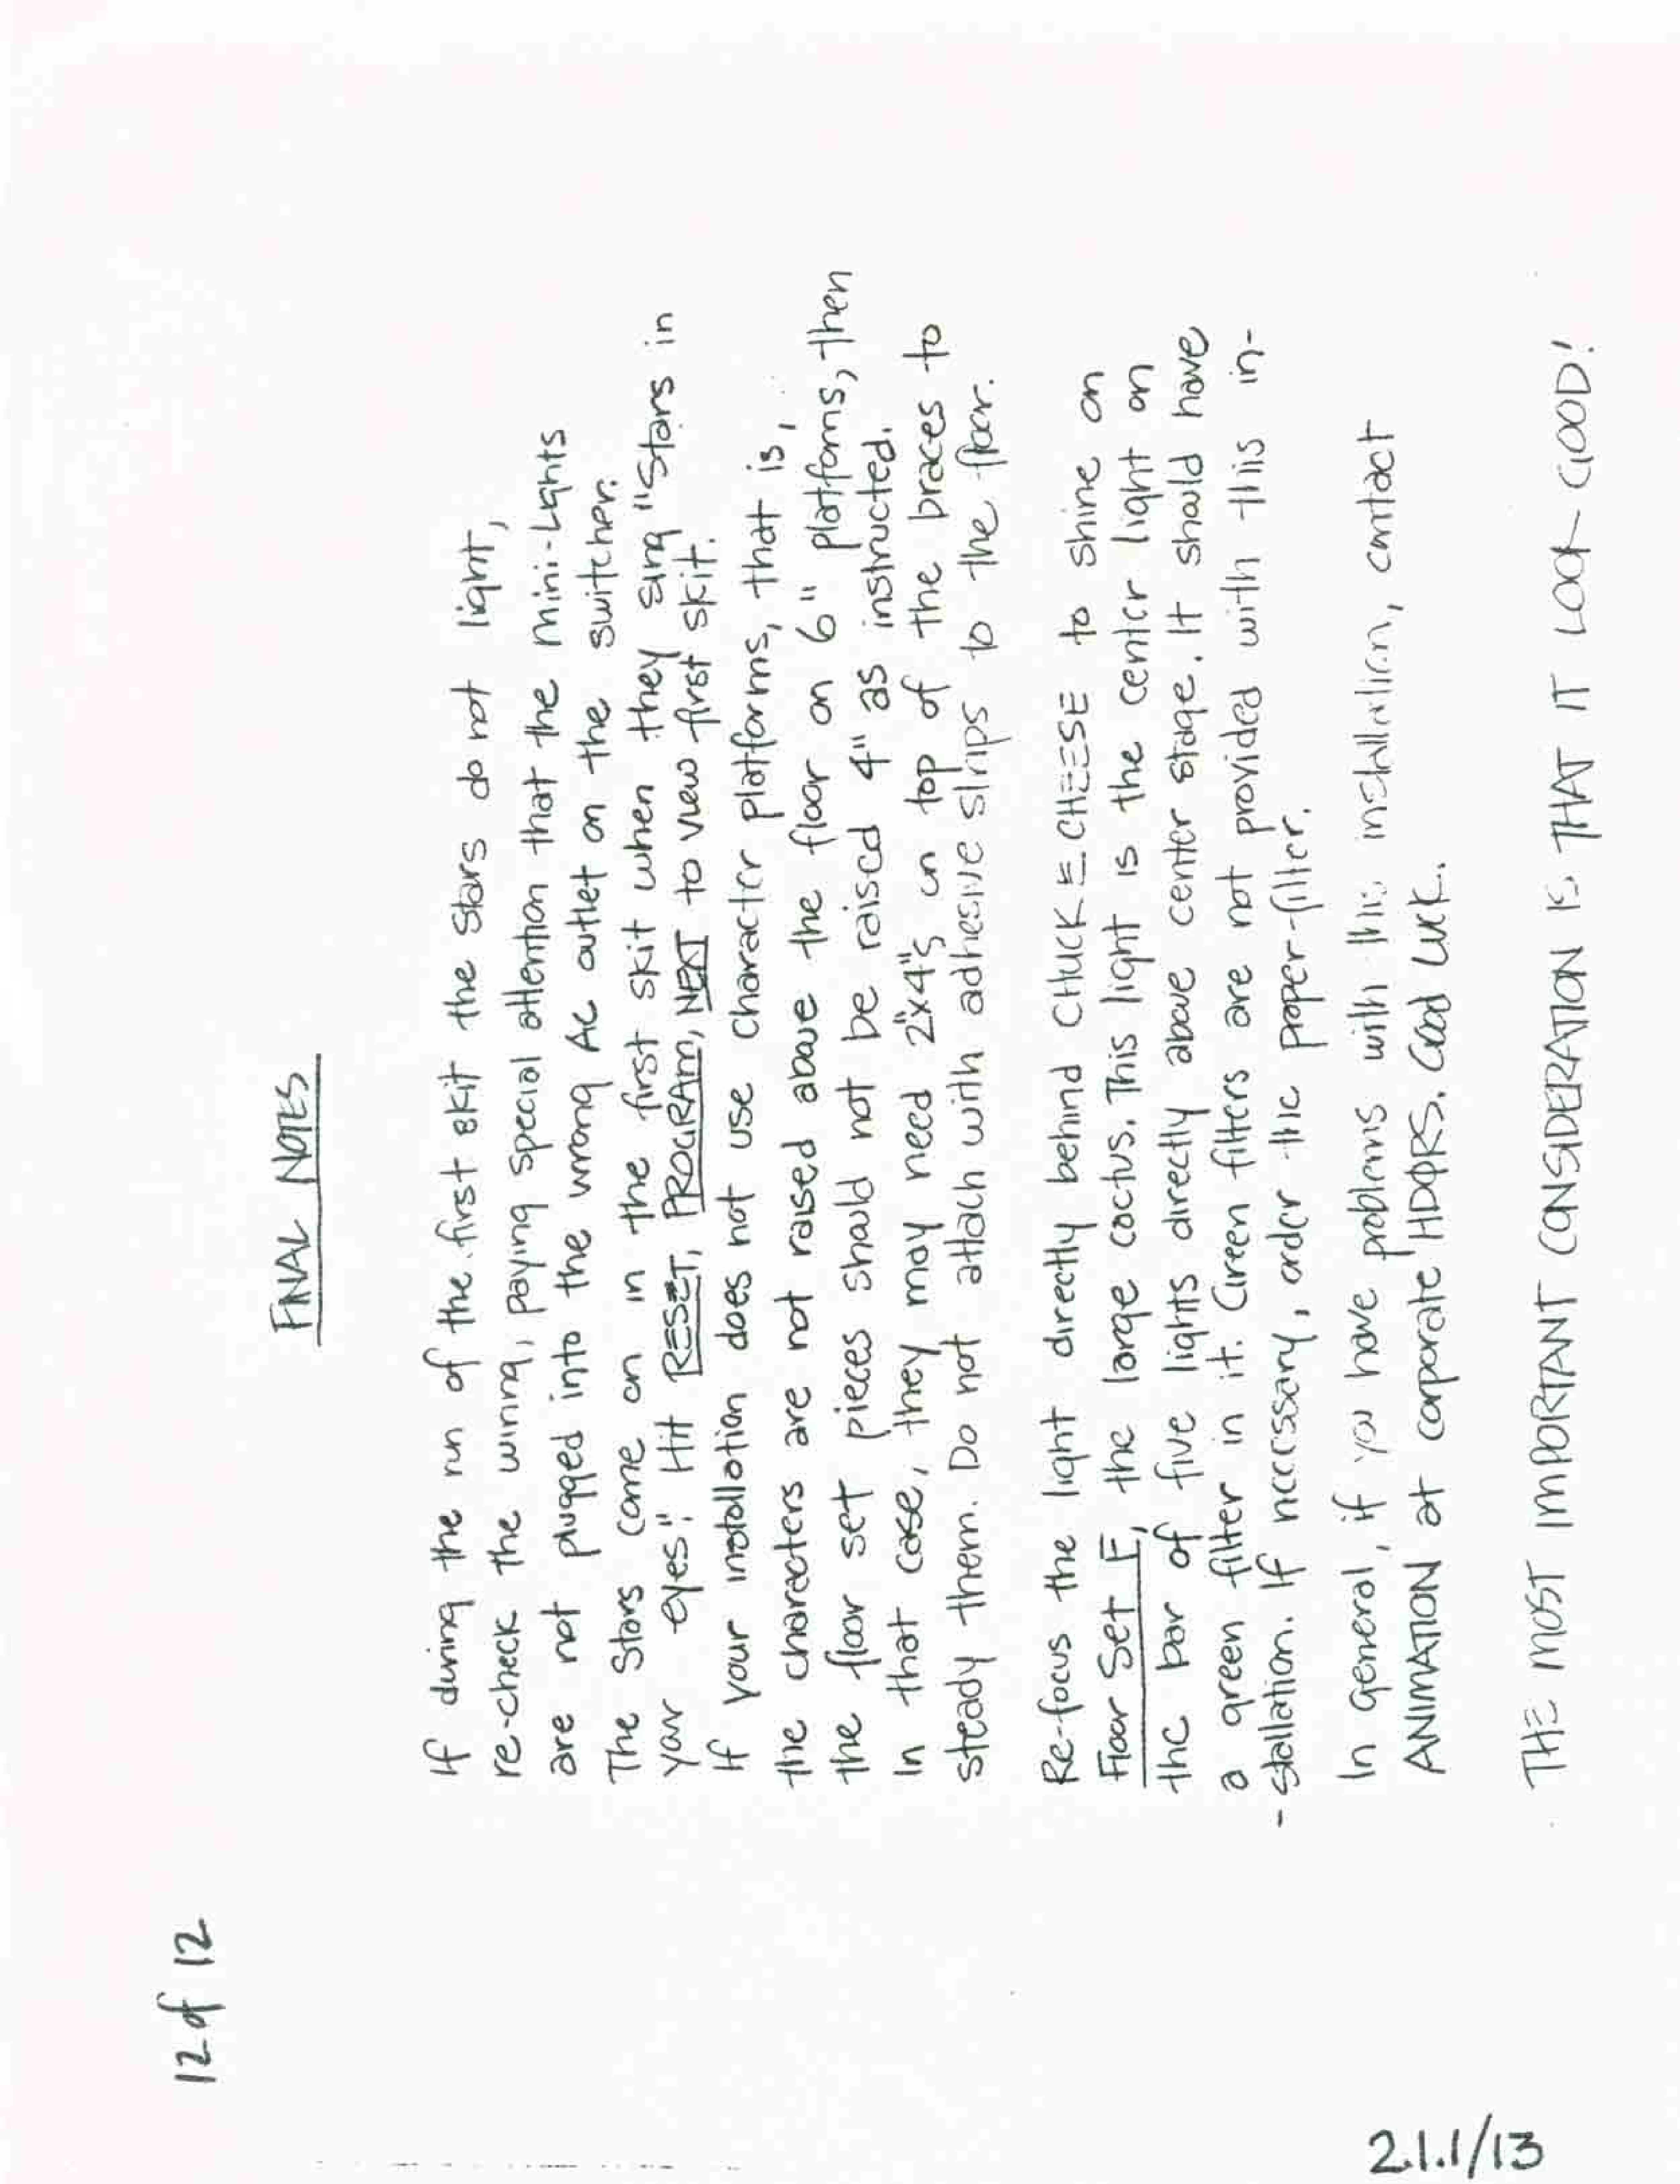 12 of 12
FINAL NOTES
If during the run of the first skit the stars do not light,
re-check the wiring, paying special attention that the Mini-Lights
are not plugged into the wrong AC outlet on the switcher.
The Stars come on in the first skit when they sing "Stars in
your eyes". Hit RESET, PROGRAM, NEXT to view first skit.
If your installation does not use character platforms, that is,
the characters are not raised above the floor on 6" platforms, then
the floor set pieces should not be raised 4" as instructed.
In that case, they may need 2"x4"s on top of the braces to
steady them. Do not attach with adhesive strips to the floor.
Re-focus the light directly behind CHUCK E CHEESE to shine on
Floor Set F, the large cactus. This light is the center light on
the bar of five lights directly above center stage. It should have
a green filter in it. Green filters are not provided with this in-
-stallation. If necessary, order the proper filter.
In general, if you have problems with this installation, contact
ANIMATION at corporate HDQRS. Good Luck.
THE MOST IMPORTANT CONSIDERATION IS THAT IT LOOK GOOD!
2.1.1/13